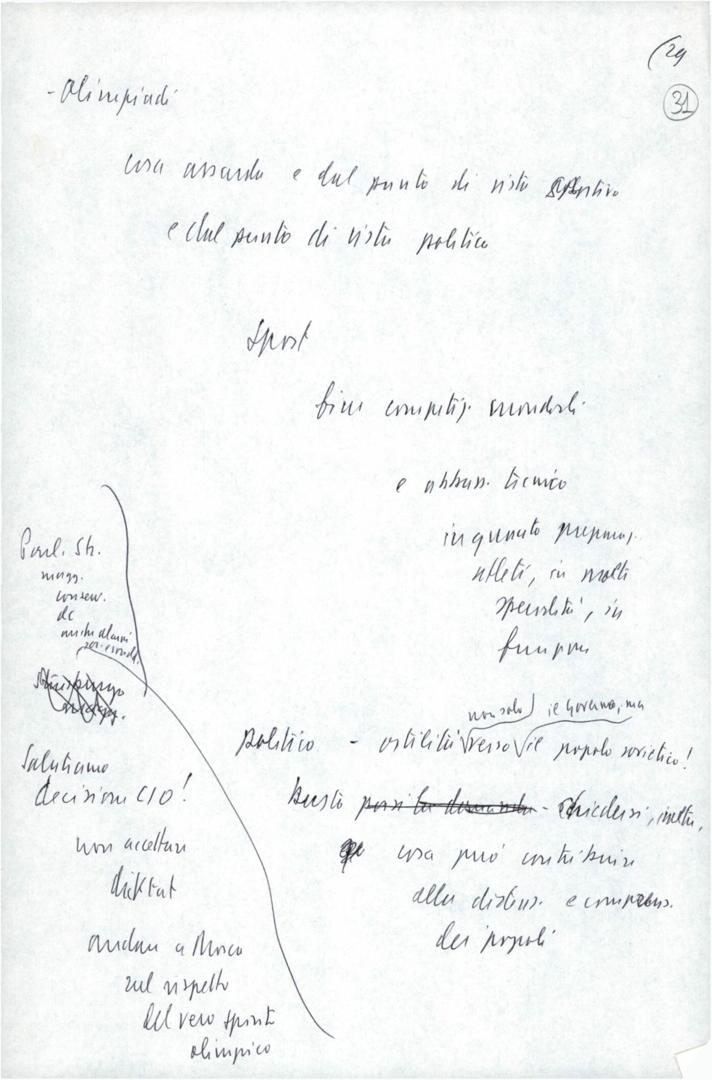 (29
31
- Olimpiadi
cosa assurda e dal punto di vista sportivo
e dal punto di vista politico
Sport
fine competiz. mondiali
e abbass. tecnico
in quanto preparaz.
atleti, in molti
specialità, in
funzione
Parl. Str.
magg.
conserv.
dc
anche alcuni
Salutiamo
decisione CIO!
non accettare
diktat
andare a Mosca
nel rispetto
del vero spirito
olimpico
non solo il Governo, ma
politico - ostilità verso il popolo sovietico!
Basta porsi la domanda - Chiedersi, inoltre,
cosa può contribuire
alla distens. e comprens.
dei popoli